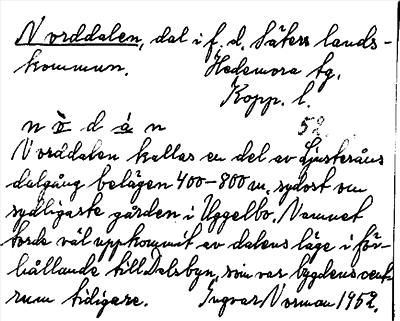 Norddalen, dal i f. d. Säters lands-
kommun. Hedemora tg.
Kopp. l.
52
Norddalen kallas en del av Ljusteråns
dalgång belägen 400–800 m. sydost om
sydligaste gården i Uggelbo. Namnet
torde väl uppkommit av dalens läge i för-
hållande till Dalsbyn, som var bygdens cent-
rum tidigare. Ingvar Norman 1952.